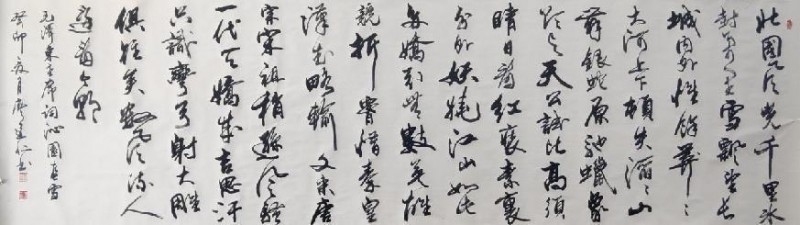 北国风光千里冰
封万里雪飘望长
城内外惟馀莽〻
大河上下顿失滔〻山
舞银蛇原驰蜡象
欲与天公试比高须
晴日看红装素裹
分外妖娆江山如此
多娇引无数英雄
竞折腰惜秦皇
汉武略输文采唐
宗宋祖稍逊风骚
一代天骄成吉思汗
只识弯弓射大雕
俱往矣数风流人
物看今朝
毛泽东主席词沁园春雪
癸卯夏月